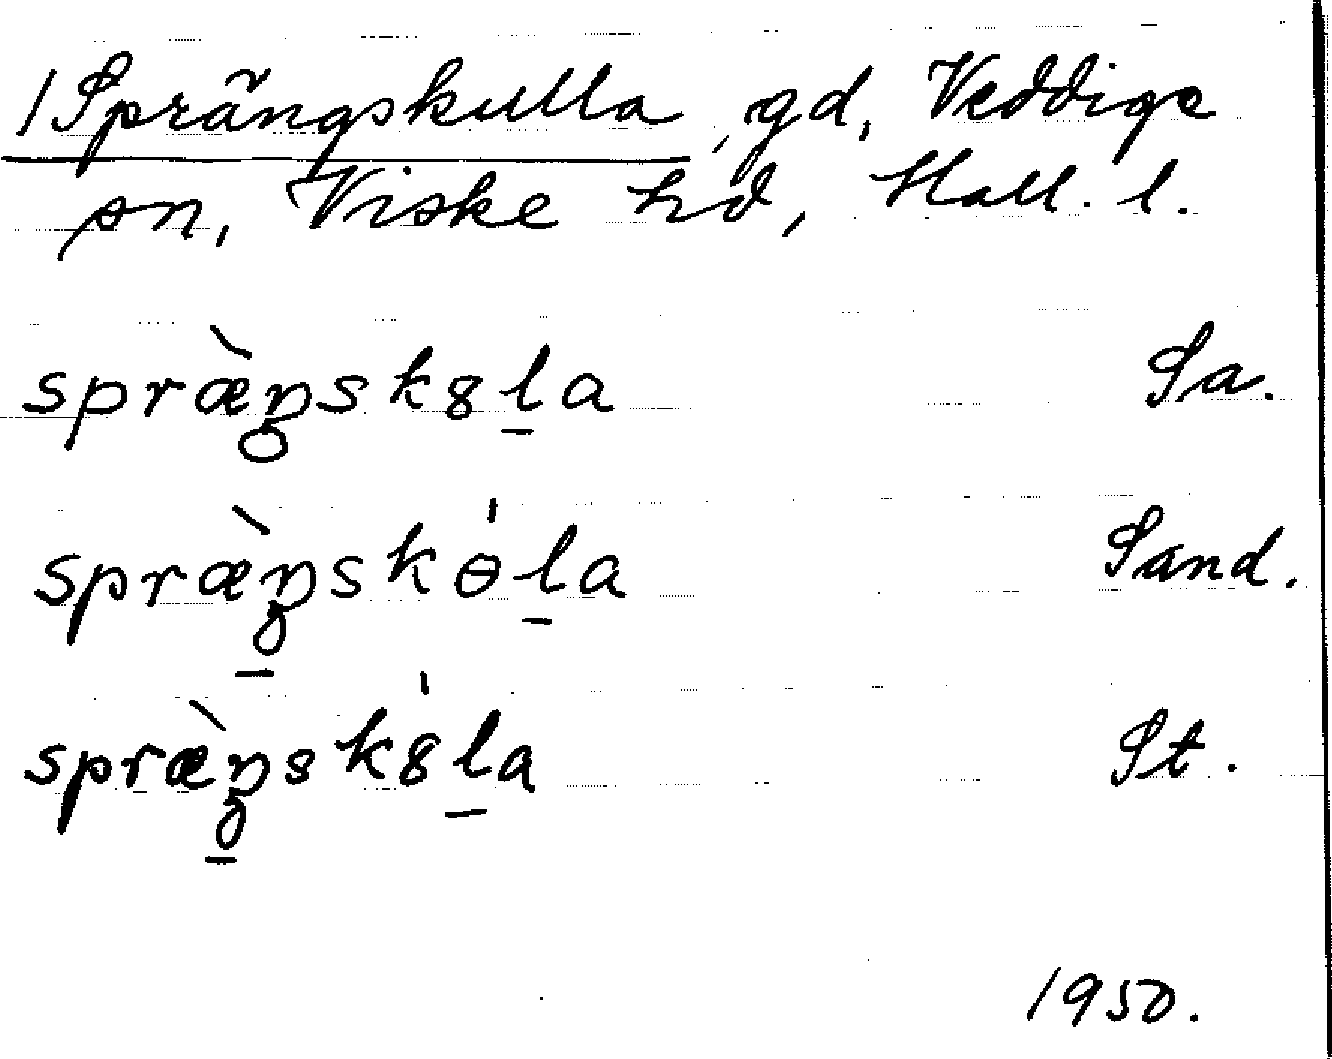 1 Sprängskulla, gd, Veddige
sn, Viske hd, Hall. l.
spræ̀ŋsk8l̠a Sa.
spræ̀ŋskɵ̍l̠a Sand.
spræ̀ŋsk8̍l̠a St.
1950.